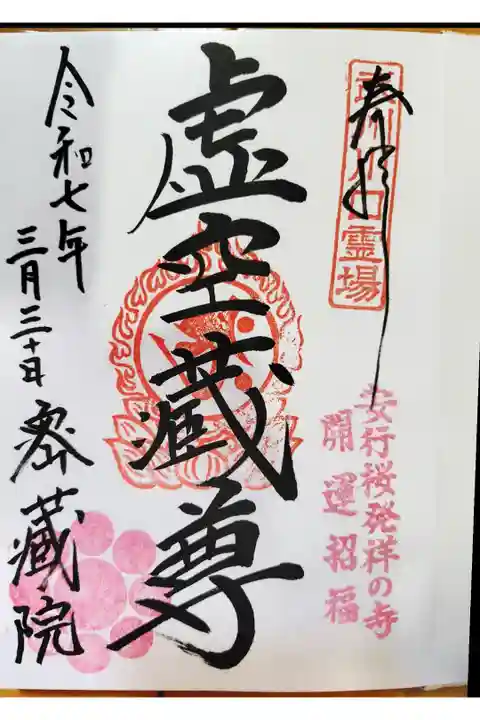 奉拝
武州川口霊場
安行桜発祥の寺
開運招福
虚空蔵尊
令和七年
三月三十日
密蔵院